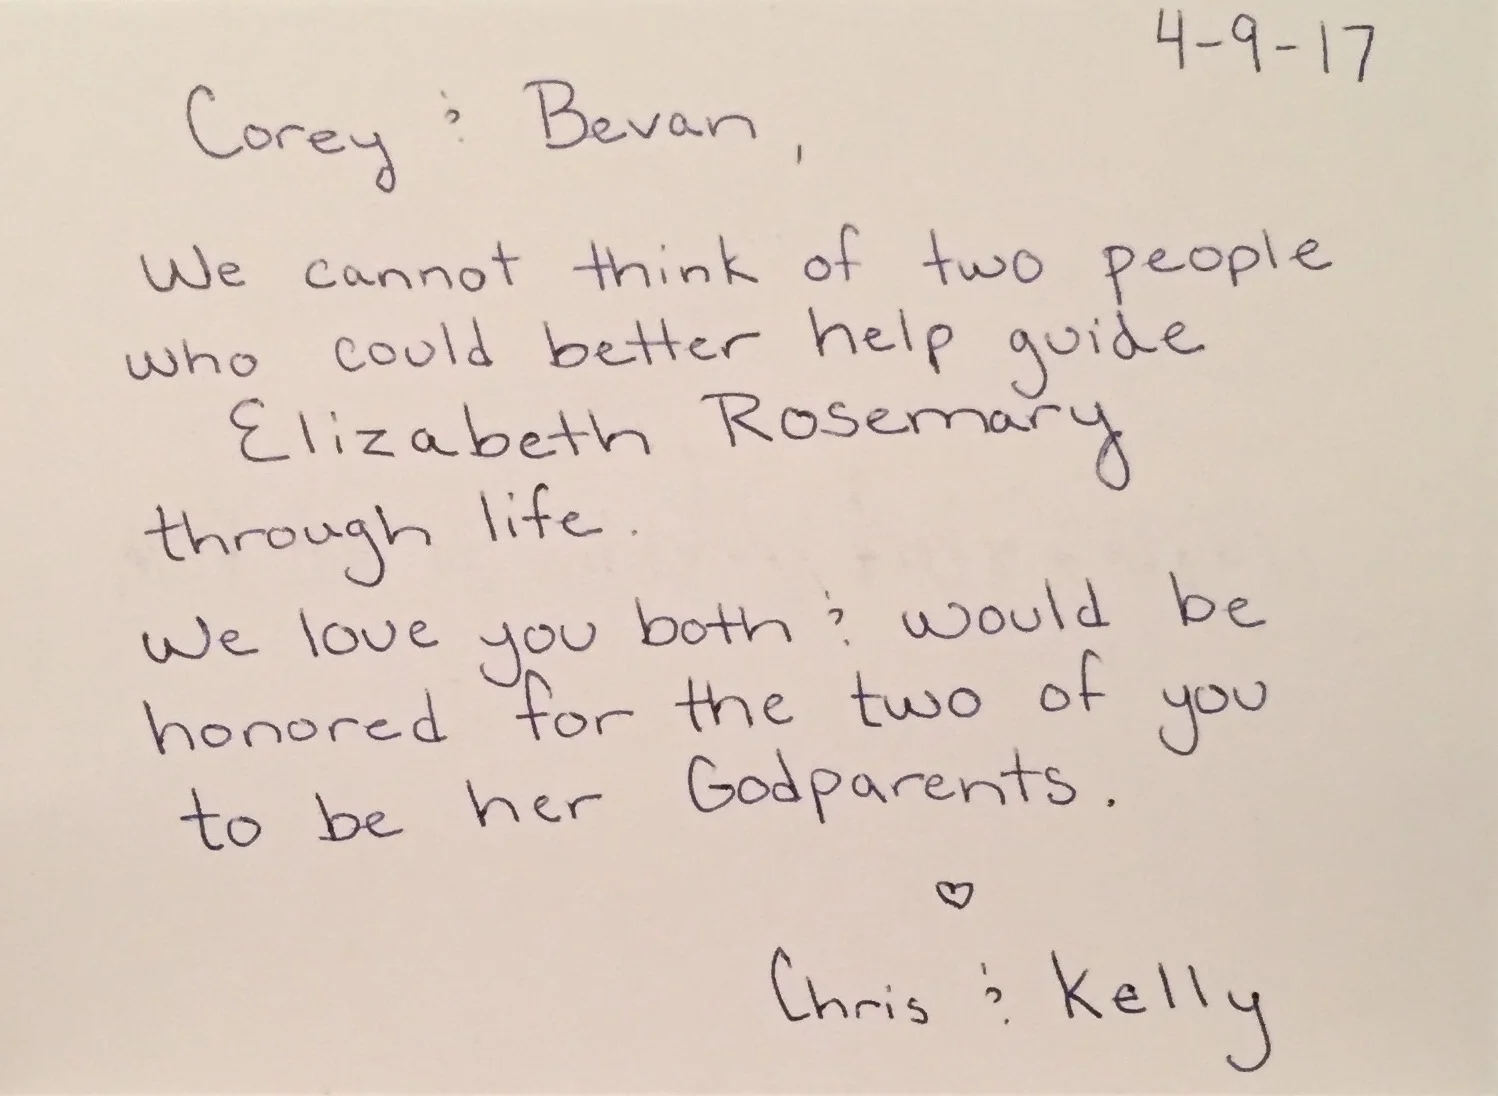 4-9-17
Corey & Bevan,
We cannot think of two people
who could better help guide
Elizabeth Rosemary
through life.
We love you both & would be
honored for the two of you
to be her Godparents.
♡
Chris & Kelly